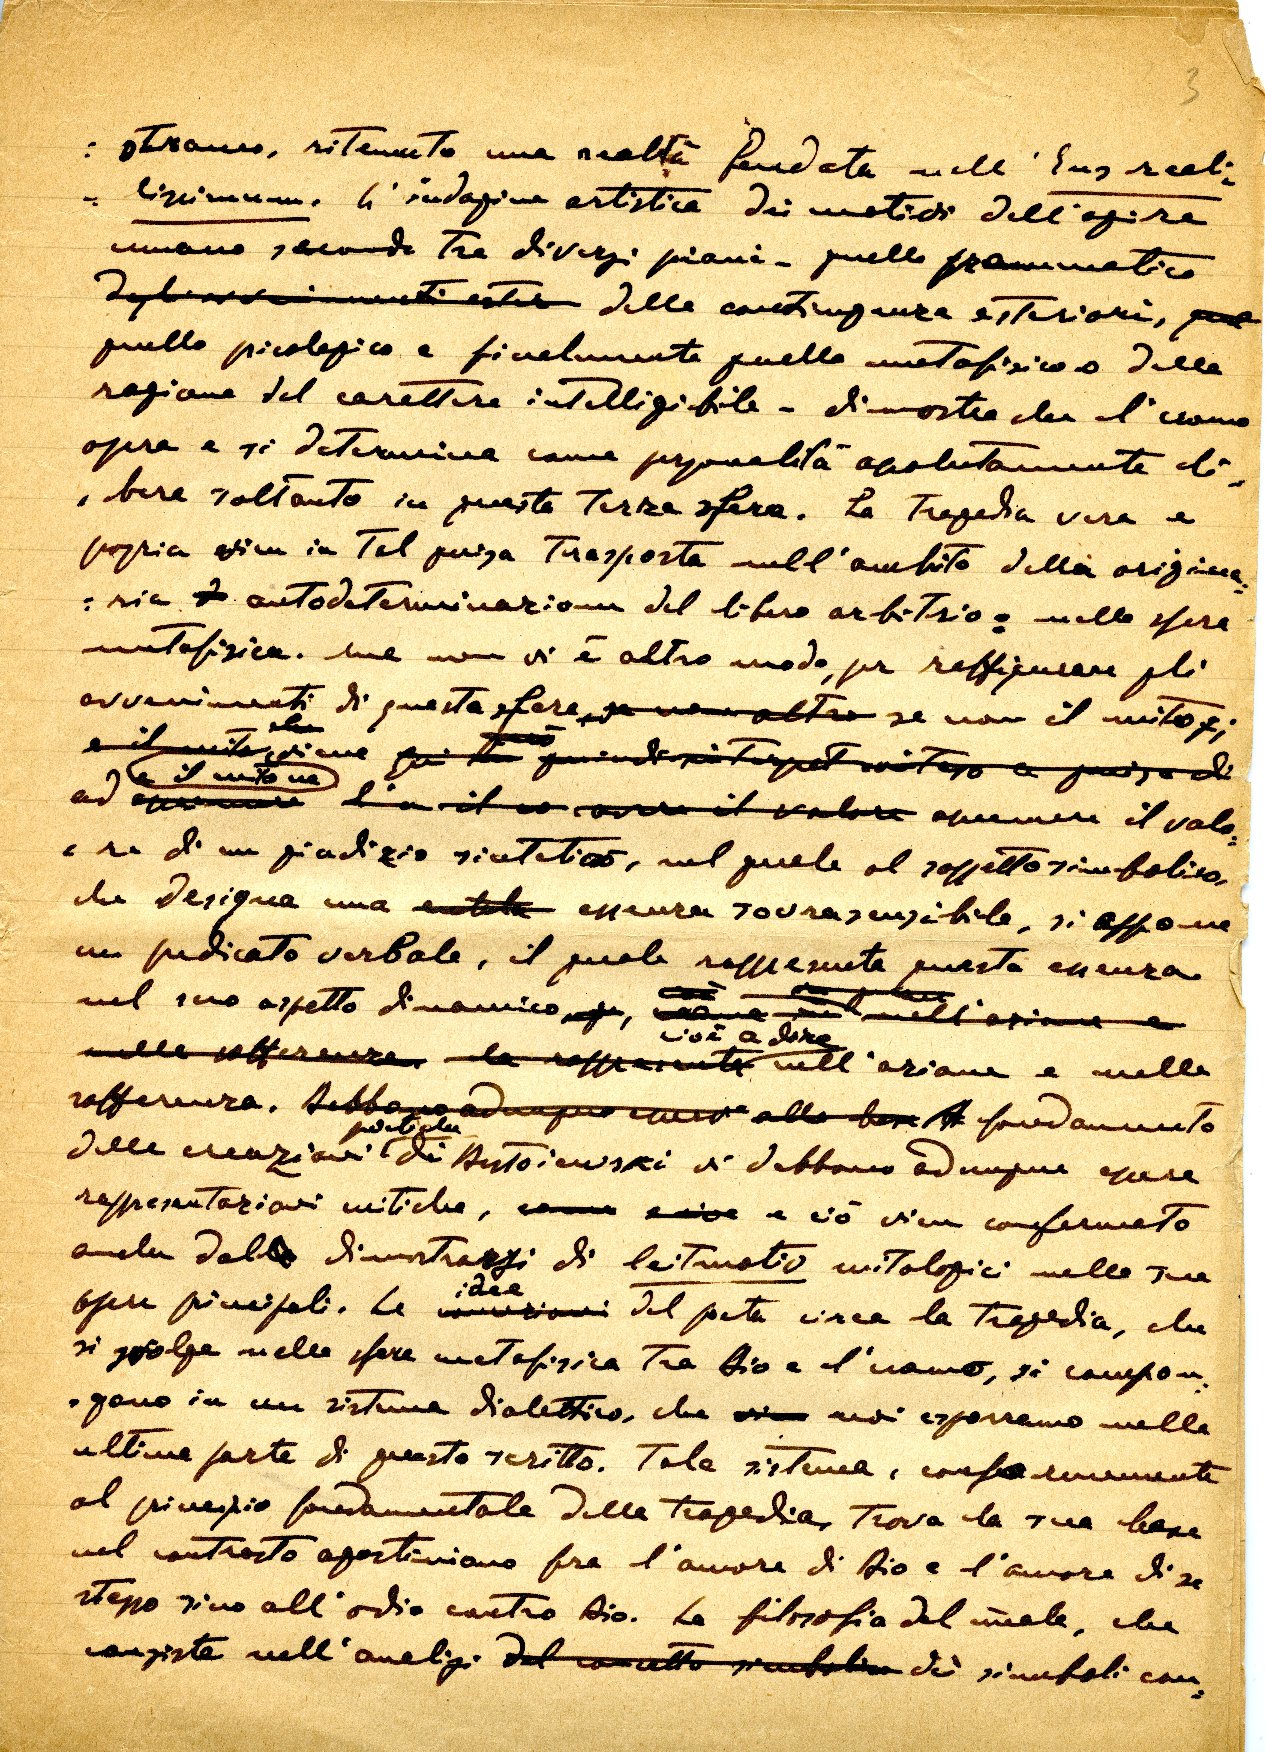 3
: straneo, ritenuto una realtà fondata nell'Ens reali-
= lissimum. L'indagine artistica dei motivi dell'agire
umano secondo tre diversi piani - quello prammatico
degli avvenimenti ester delle contingenze esteriori, quel
quello psicologico e finalmente quello metafisico o della
ragione del carattere intelligibile - dimostra che l'uomo
opera e si determina come personalità assolutamente li-
, bera soltanto in questa terza sfera. La tragedia vera e
propria vien in tal guisa trasposta nell'ambito della origina=
: ria autodeterminazione del libero arbitrio: nella sfera
metafisica. Ma non vi è altro modo, per raffigurare gli
avvenimenti di questa sfera, se non altro se non il mito;
e il mito, che viene però quindi interpret inteso a guisa di
e il mito ne
ad esprimere il valore esprimere il valo=
= re di un giudizio sintetico, nel quale al soggetto simbolico,
che designa una entità essenza sovrasensibile, si appone
un predicato verbale, il quale rappresenta questa essenza
nel suo aspetto dinamico, nell'azione e
cioè a dire
nella sofferenza. la rappresenta nell'azione e nella
sofferenza. Debbono adunque essere alla base A fondamento
poetiche
delle creazioni di Dostoiewski vi debbono adunque essere
rappresentazioni mitiche, e ciò vien confermato
anche dal dimostrarsi di leitmotiv mitologici nelle sue
idee
opere principali. Le del poeta circa la tragedia, che
si svolge nella sfera metafisica tra Dio e l'uomo, si compon:
= gono in un sistema dialettico, che noi esporremo nella
ultima parte di questo scritto. Tale sistema, conformemente
al principio fondamentale della tragedia, trova la sua base
nel contrasto agostiniano fra l'amore di Dio e l'amore di se
stesso sino all'odio contro Dio. La filosofia del male, che
consiste nell'analisi del concetto simbolico dei simboli con=